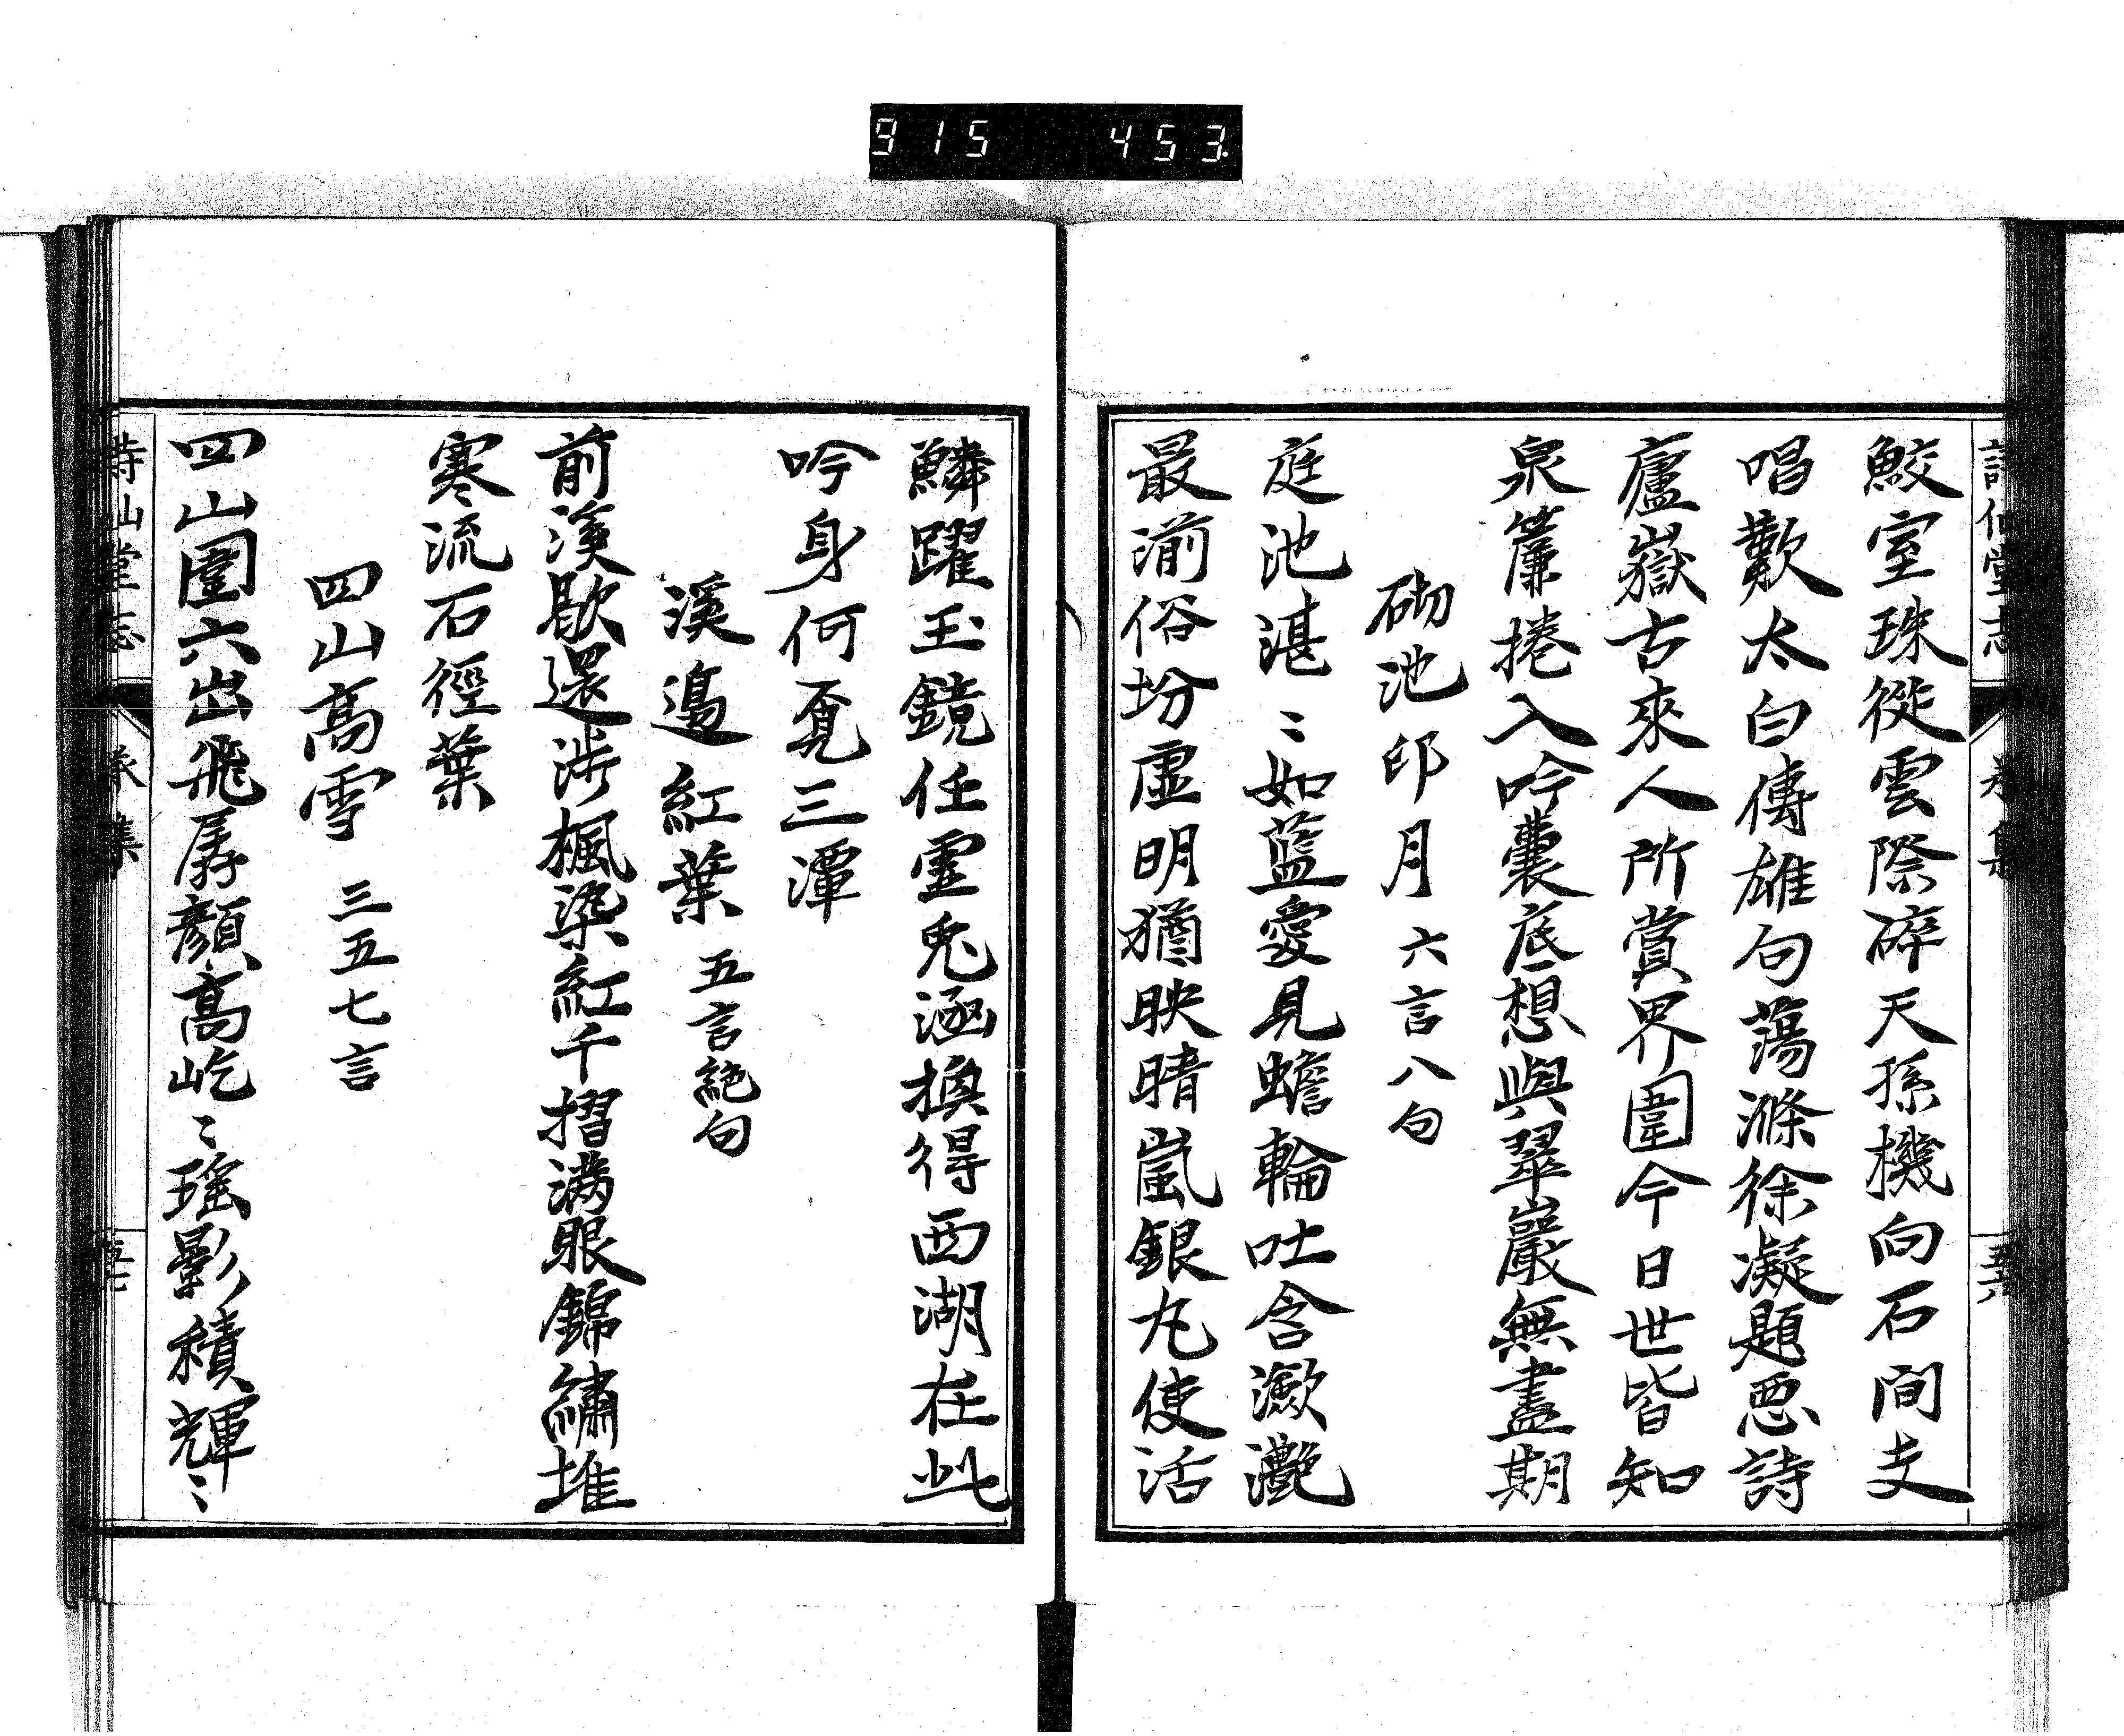 915 453
鮫室珠從雲際碎天孫機向石間支
唱歎太白傳雄句蕩滌徐凝題惡詩
廬嶽古來人所賞界圍今日世皆知
泉簾捲入吟囊底想與翠巖無盡期
砌池印月 六言八句
庭池湛〻如藍愛見蟾輪吐含瀲灔
最湔俗坋虛明猶映晴嵐銀丸使活
鱗躍玉鏡任靈兎涵換得西湖在此
吟身何覓三潭
溪邊紅葉 五言絕句
前溪歇還涉楓染紅千摺滿眼錦繡堆
寒流石徑葉
四山高雪 三五七言
四山圍六出飛孱顏高屹〻瑤影積輝〻